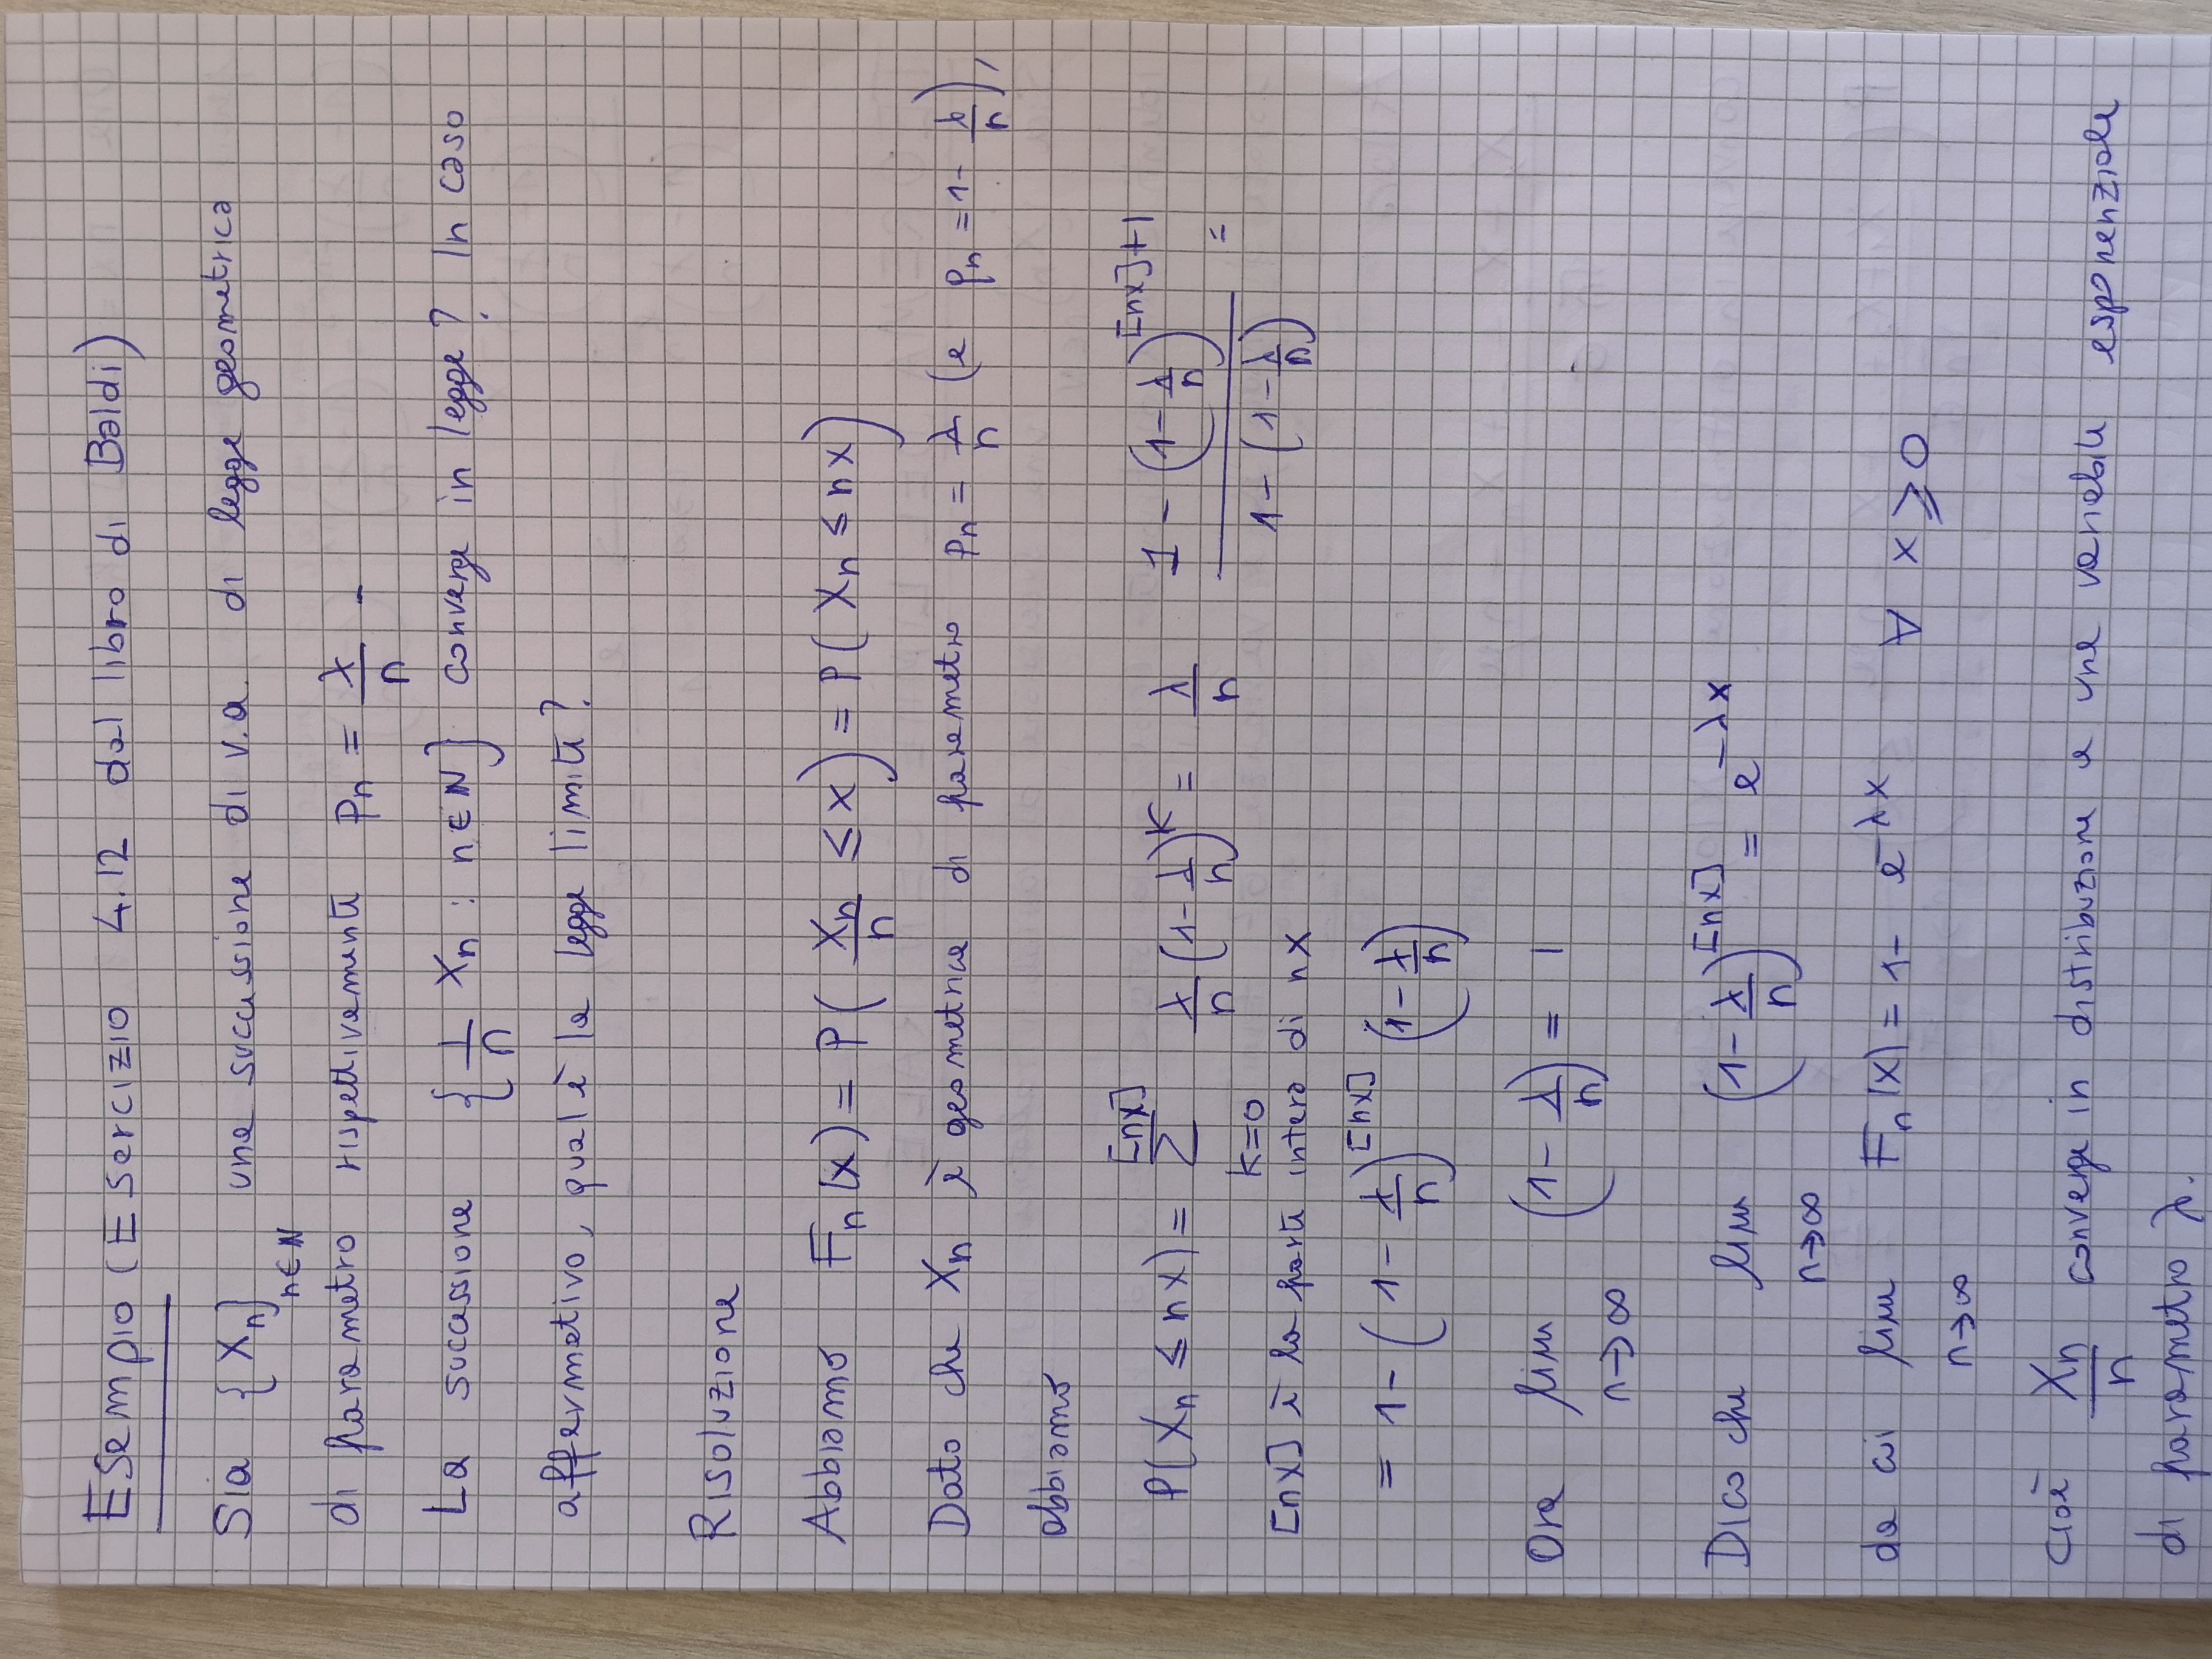 Esempio (Esercizio 4.12 dal libro di Baldi)
Sia {Xₙ}ₙ∈ℕ una successione di v.a. di legge geometrica
di parametro rispettivamente pₙ = λ/n .
La successione {1/n Xₙ : n∈ℕ} converge in legge? In caso
affermativo, qual è la legge limite?
Risoluzione
Abbiamo Fₙ(x) = P(Xₙ/n ≤ x) = P(Xₙ ≤ nx)
Dato che Xₙ è geometrica di parametro pₙ = λ/n (e pₙ = 1 - λ/n),
abbiamo
P(Xₙ ≤ nx) = Σ_{k=0}^{[nx]} λ/n (1 - λ/n)^k = λ/n (1 - (1 - λ/n)^{[nx]+1})/(1 - (1 - λ/n)) =
[nx] è la parte intera di nx
= 1 - (1 - λ/n)^{[nx]} (1 - λ/n)
Ora lim_{n→∞} (1 - λ/n) = 1
Dico che lim_{n→∞} (1 - λ/n)^{[nx]} = e^{-λx}
da cui lim_{n→∞} Fₙ(x) = 1 - e^{-λx} ∀ x ⩾ 0
cioè Xₙ/n converge in distribuzione a una variabile esponenziale
di parametro λ.